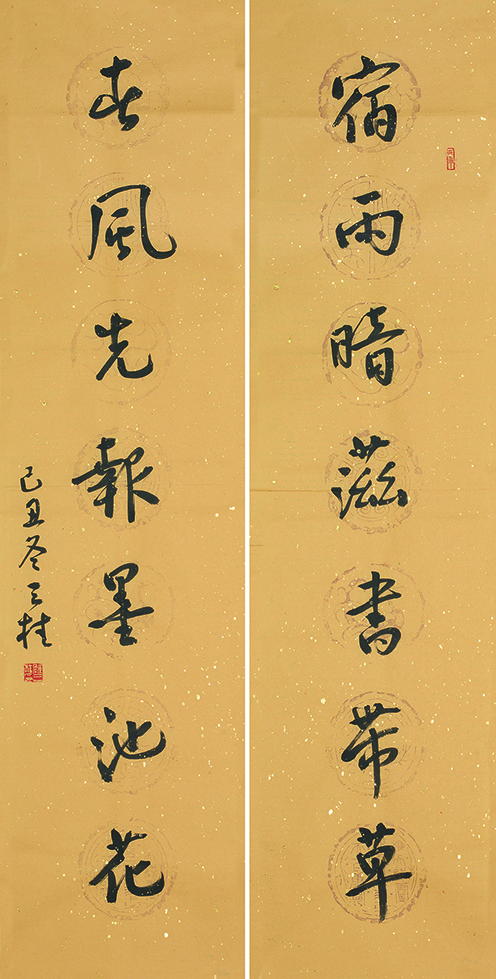 宿雨暗滋書帶草
春風先報墨池花
己丑冬三桂